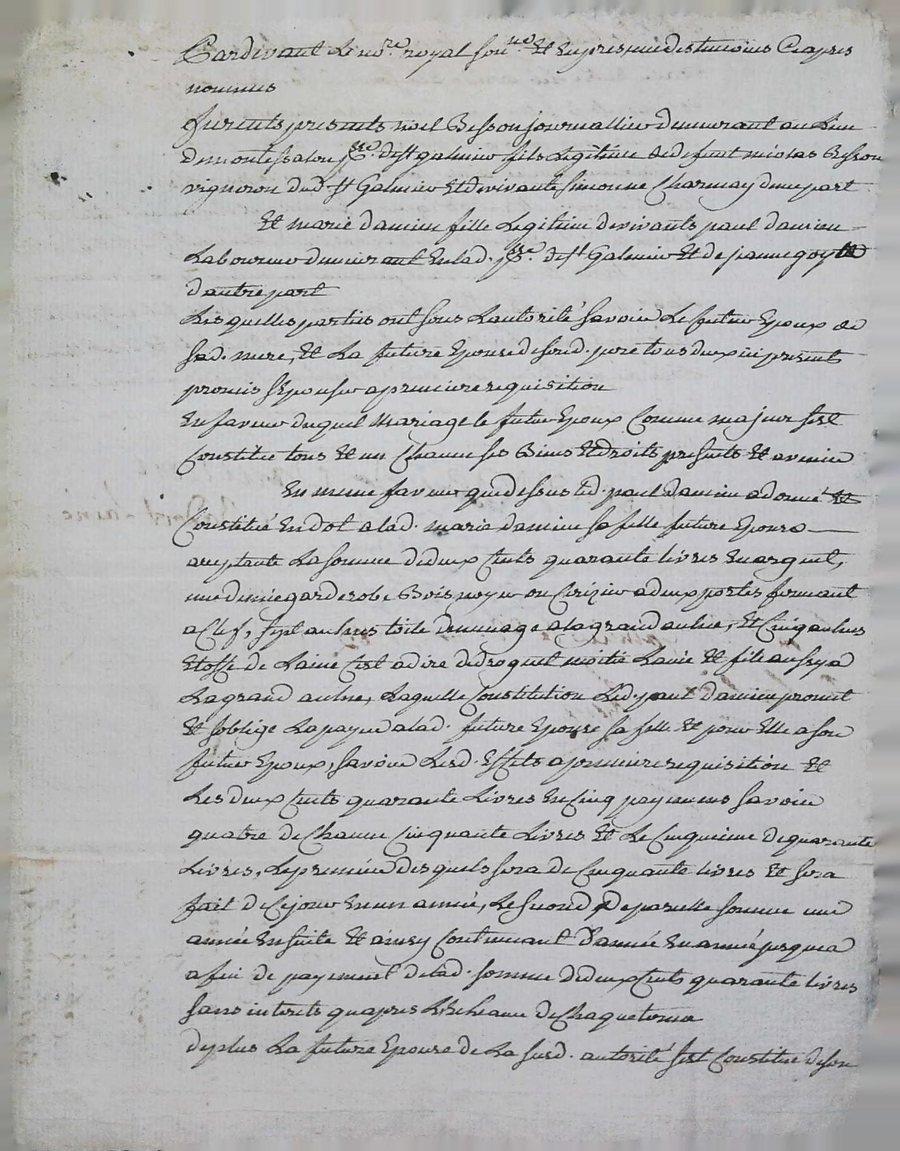 Pardevant le no.re royal sous.né et en presence des temoins cy apres
nommes
furents presents noel Besson journallier demeurant au lieu
de montessalou p.sse de s.t galmier fils legitime de defunt nicolas Besson
vigneron dud. s.t Galmier et de vivante Simonne Charmay d'une part
Et marie damien fille legitime de vivants paul damien
Laboureur demeurant en lad. p.sse de s.t Galmier et de janne goy
d'autre part
Lesquelles parties ont sous L'autorité savoir Le futur Epoux de
sad. mere, et La future Epouse de sond. pere tous deux icy presents
promis s'Epouser a premiere requisition
En faveur duquel mariage le futur Epoux Comme majeur s'est
Constitué tous et un Chacun ses Biens et droits presents et avenir
En meme faveur que dessus led. paul damien a donné et
Constitué En dot a lad. marie damien sa fille future Epouse
acceptante La somme de deux Cents quarante livres En argent,
une demie garderobe Bois noyer ou Cerizier a deux portes fermant
a Clef, sept aulnes toile de menage a la grand aulne, et Cinq aulnes
Etoffe de Laine C'est a dire de droguet moitié Laine et fil aussy a
La grand aulne, Laquelle Constitution Led. paul damien promet
et s'oblige La payer a lad. future Epouse sa fille et pour Elle a son
futur Epoux, savoir Lesd. Effets a premiere requisition et
Les deux Cents quarante Livres En Cinq payemens savoir
quatre de Chacun Cinquante Livres et Le Cinquieme de quarante
Livres, Le premier desquels sera de Cinquante livres et sera
fait de Ce jour En un année, Le second de pareille somme une
année Ensuite et ainsy Continuant d'année En année jusqu'a
a fin de payement de lad. somme de deux Cents quarante livres
sans interets qu'apres L'Echeance de Chaque terme
de plus La future Epouse de La susd. autorité s'est Constitué de son